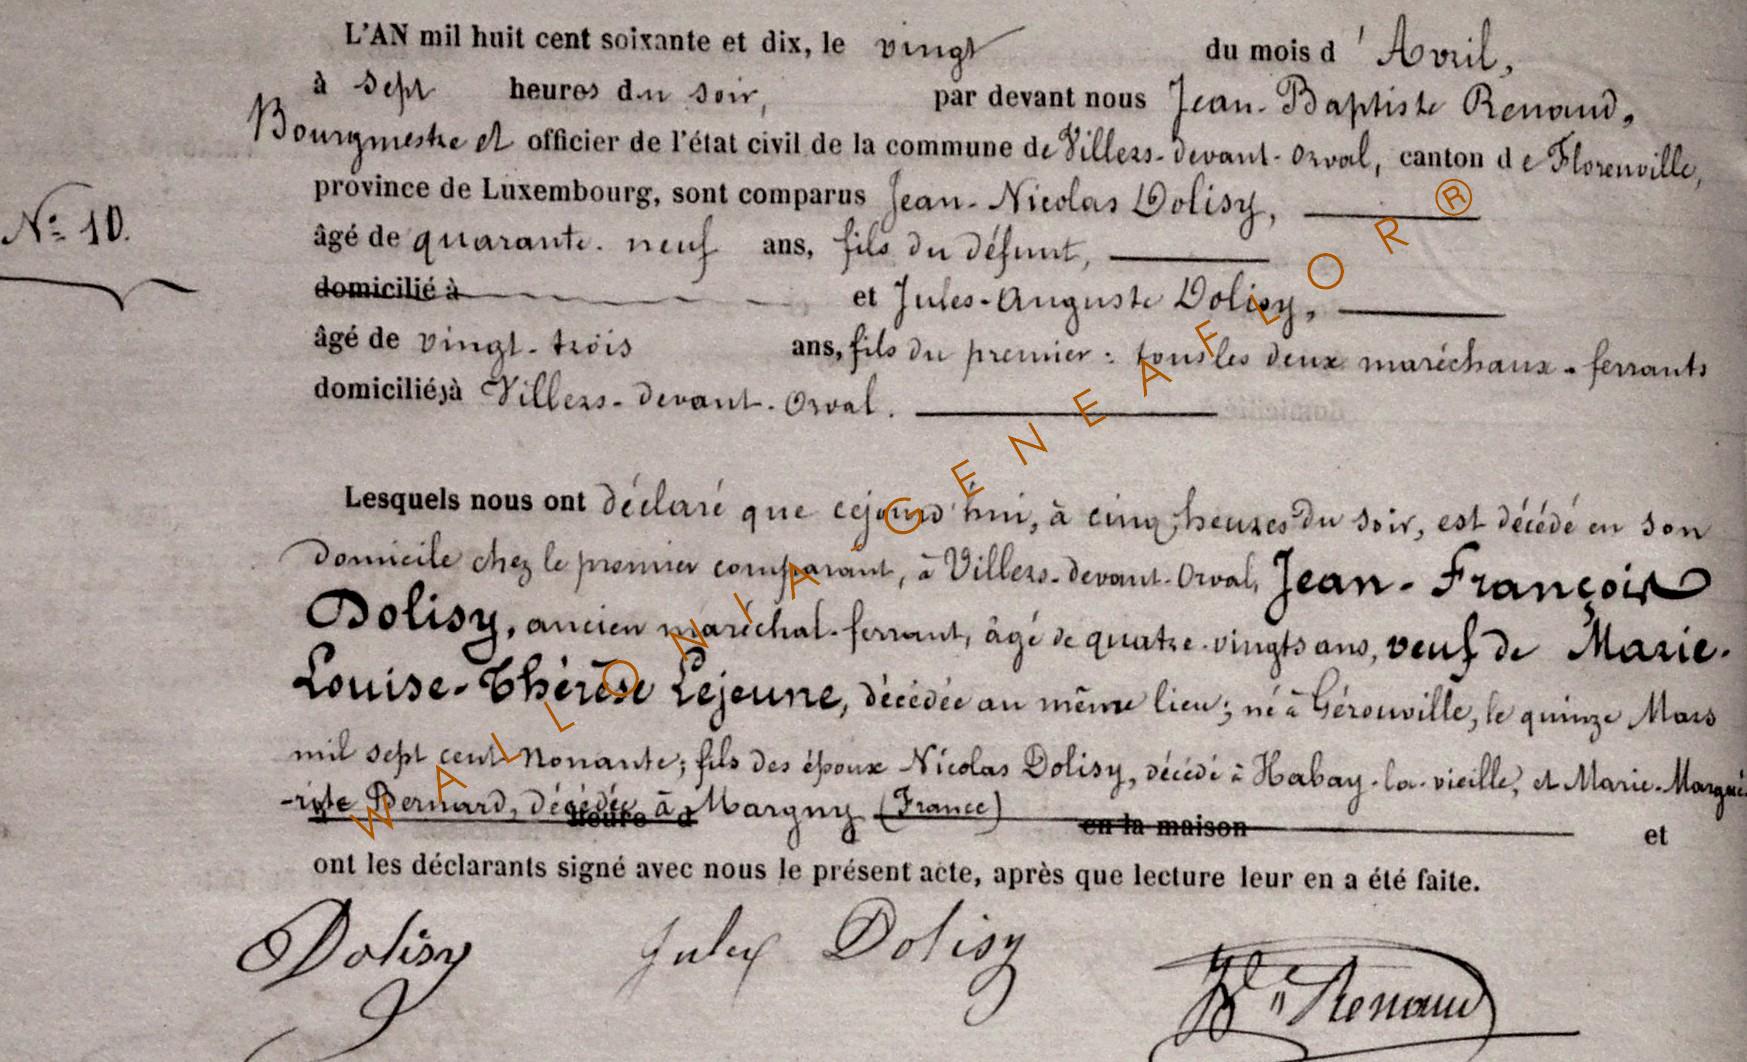 L'AN mil huit cent soixante et dix, le vingt du mois d'Avril,
à sept heures du soir, par devant nous Jean-Baptiste Renaud,
Bourgmestre et officier de l'état civil de la commune de Villers-devant-Orval, canton de Florenville,
province de Luxembourg, sont comparus Jean-Nicolas Dolisy,
N° 10.
âgé de quarante-neuf ans, fils du défunt,
domicilié à et Jules-Auguste Dolisy,
âgé de vingt-trois ans, fils du premier : tous les deux maréchaux-ferrants
domiciliés à Villers-devant-Orval.
Lesquels nous ont déclaré que cejourd'hui, à cinq heures du soir, est décédé en son
domicile chez le premier comparant, à Villers-devant-Orval, Jean-François
Dolisy, ancien maréchal-ferrant, âgé de quatre-vingts ans, veuf de Marie-
Louise-Thérèse Lejeune, décédée au même lieu; né à Gérouville, le quinze Mars
mil sept cent nonante; fils des époux Nicolas Dolisy, décédé à Habay-la-vieille, et Marie-Margué-
-rite Bernard, décédée à Margny (France)
heure d en la maison et
ont les déclarants signé avec nous le présent acte, après que lecture leur en a été faite.
Dolisy Jules Dolisy Renaud
WALLONIA GENEAFLOR®